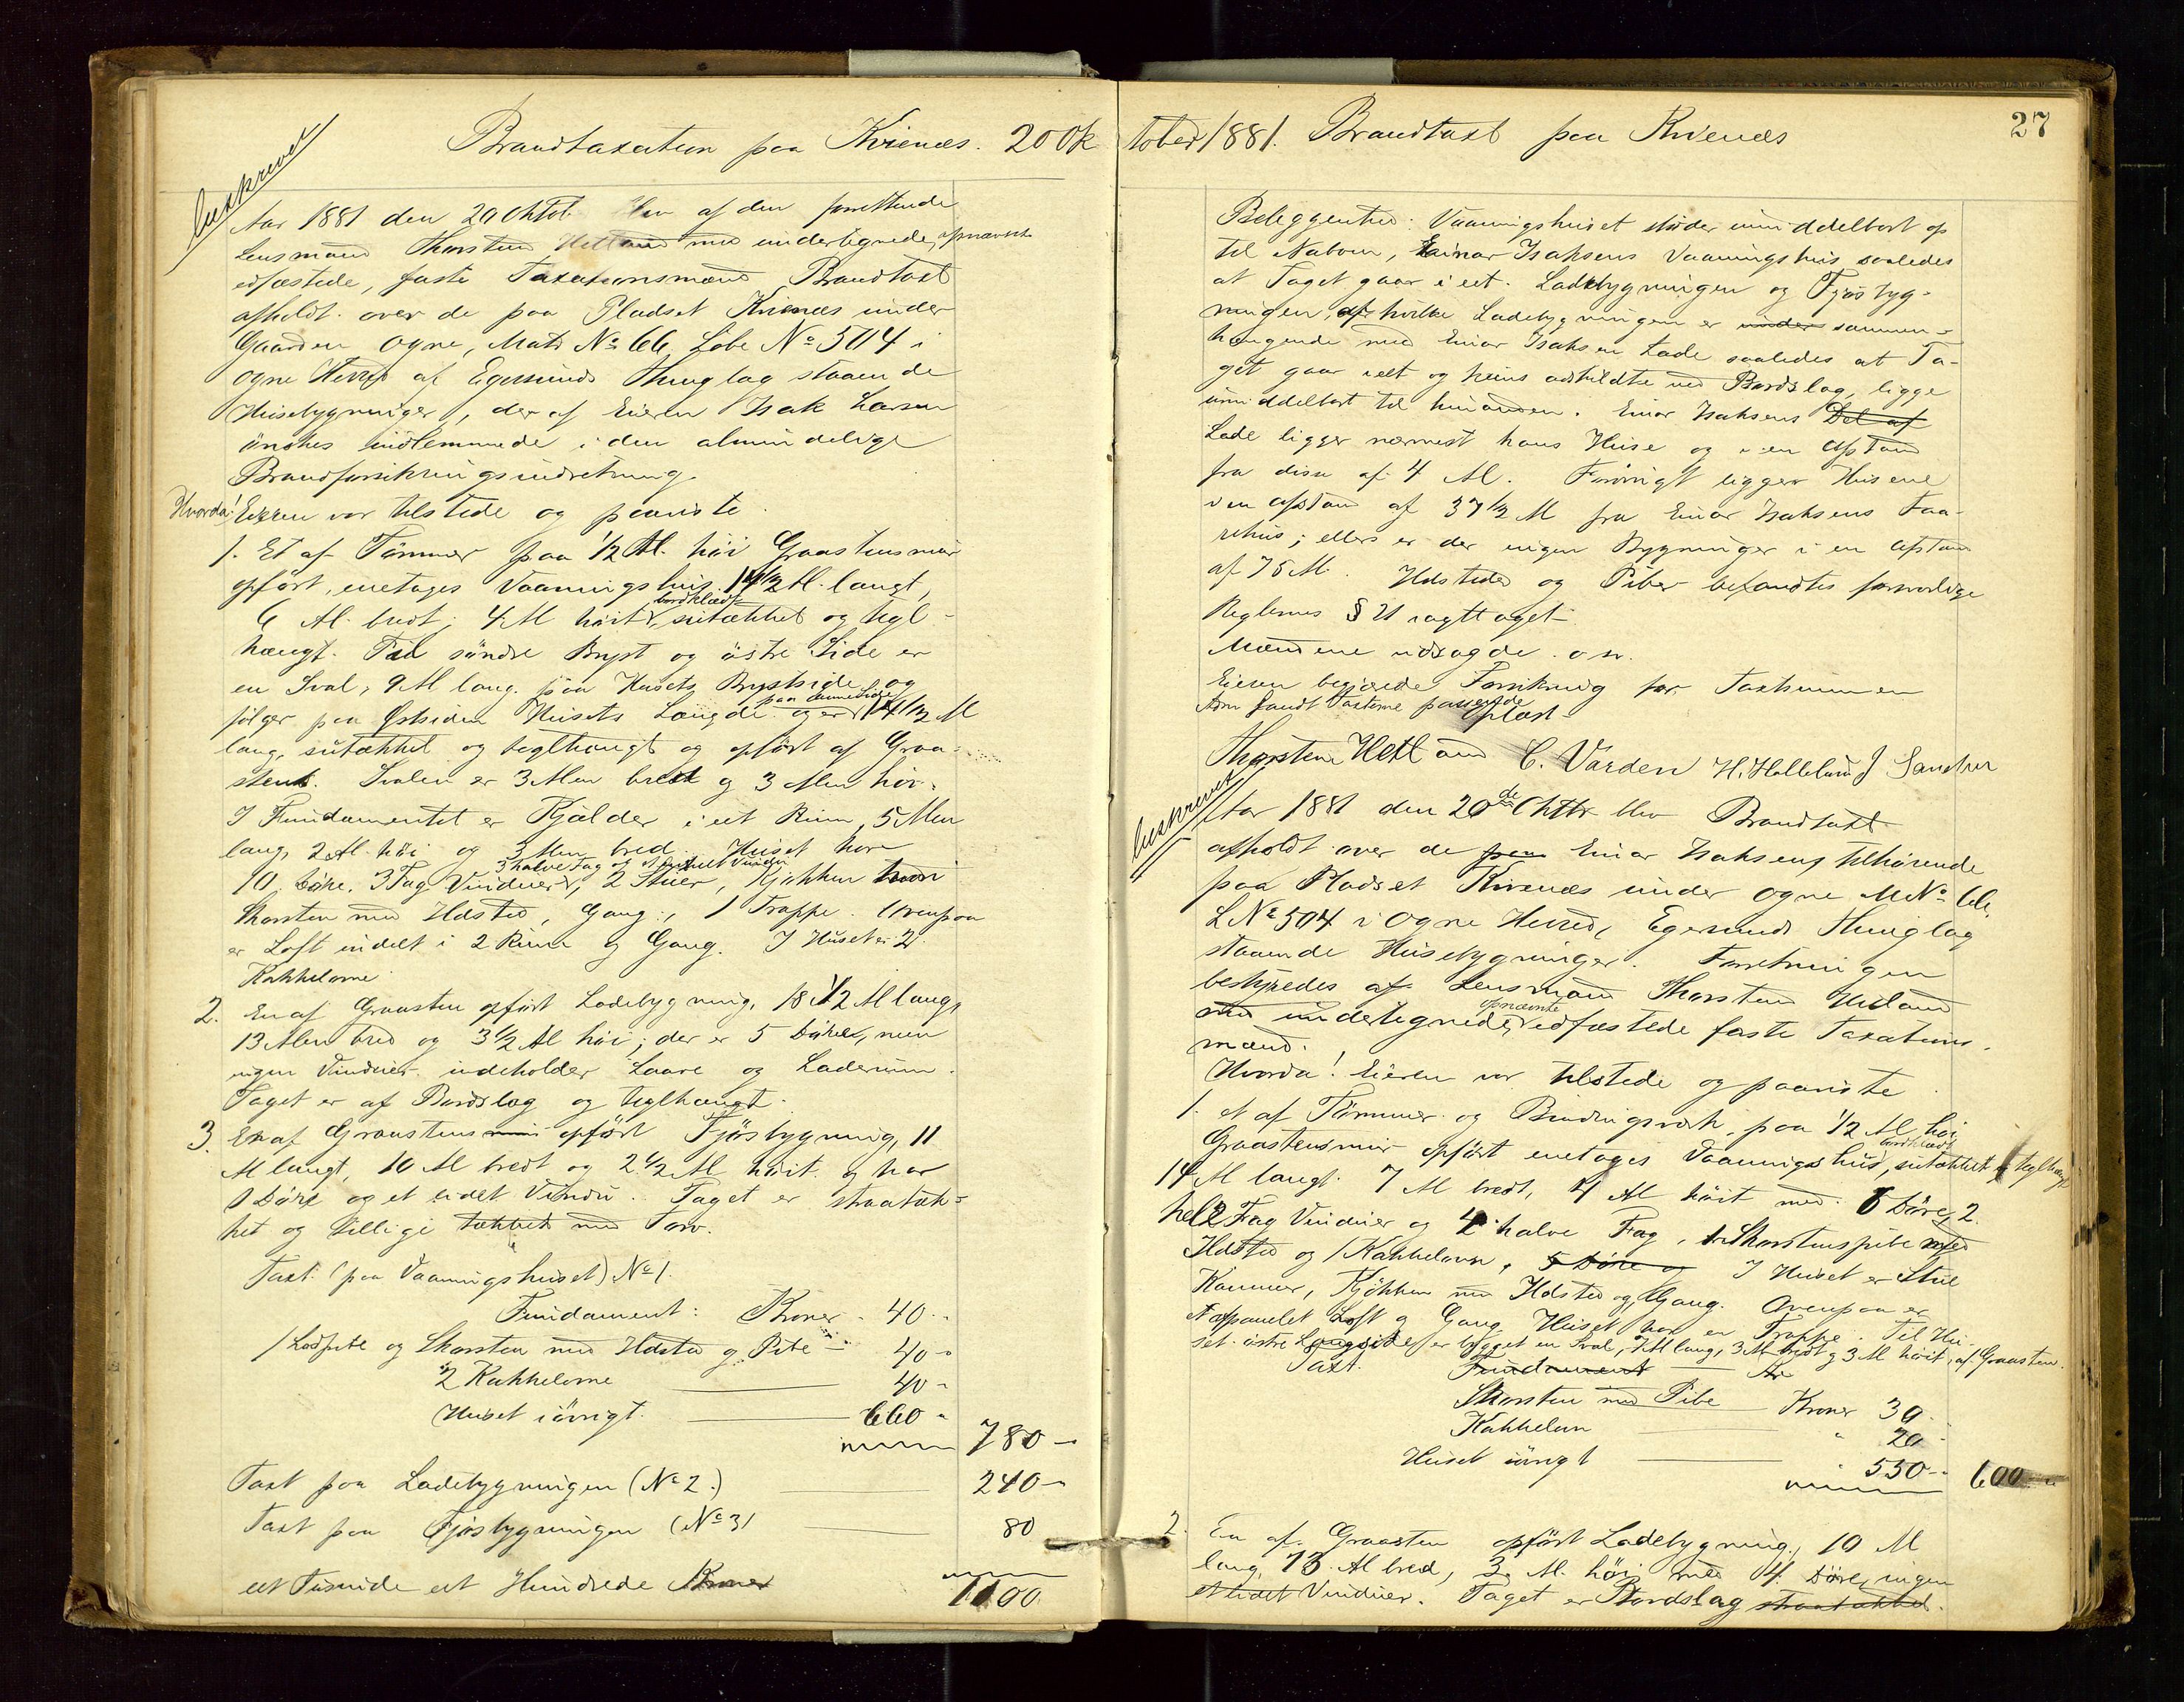 Brandtaxation paa Kvienæs. 20 Ok
beskrevet
Aar 1881 den 20 Oktob blev af den forrettende
Lensmand Thorsten Hetland med undertegnede, opnævnte
edfæstede, faste Taxationsmænd Brandtaxt
afholdt over de paa Pladset Kvienæs under
Gaarden Ogne, Matr No 66, Løbe No 504 i
Ogne Herred af Egersunds Thinglag staaende
Husebygninger, der af Eieren Isak Larsen
önskes indlemmede i den almindelige
Brandforsikringsindretning.
Hvorda! Eieren var tilstede og paaviste
1. Et af Tömmer paa 1/2 Al. höi Graastensmur
opfört, enetages Vaaningshus, 14 1/2 Al. langt,
bordklædt
6 Al. bredt, 4 Al höit, sutækket og tegl-
hængt. Paa söndre Bryst og östre Side er
en Sval, 9 Al lang. paa Husets Brystside og
paa denne Side
fölger paa Østsiden Husets Længde og er 14 1/2 Al
lang, sutækket og teglhængt og opfört af Graa-
sten. Svalen er 3 Alen bred og 3 Alen höi.
I Fundamentet er Kjælder i et Rum, 5 Alen
lang, 2 Al. höi og 3 Alen bred. Huset har
3 halve Fag og et enkelt Vindu
10 Döre, 3 Fag Vinduer, 2 Stuer, Kjøkken
Skorsten med Ildsted, Gang, 1 Trappe. Ovenpaa
er Loft indelt i 2 Rum og Gang. I Huset er 2
Kakkelovne
2. En af Graasten opfört Ladebygning, 18 1/2 Al lang,
13 Alen bred og 3 1/2 Al höi; der er 5 Döre, men
ingen Vinduer. indeholder Laave og Laderum.
Taget er af Bordslag og teglhængt.
3. En af Graastens mur opfört Fjösbygning, 11
Al langt, 10 Al bredt og 2 1/2 Al höit og har
1 Döre og et lidet Vindu. Taget er straatæk-
ket og tillige tækket med Torv.
Taxt: (paa Vaaningshuset) No 1.
Fundament: Kroner 40 -
1 Lodpibe og Skorsten med Ildsted og Pibe - 40 -
2 Kakkelovne 40 -
Huset iövrigt. 660 -
780 -
Taxt paa Ladebygningen (No 2.) 240 -
Taxt paa Fjösbygningen (No 3) 80
eet Tusinde eet Hundrede Kroner 1100.
tober 1881. Brandtaxt paa Kvienæs
27
Beleggenhed: Vaaningshuset stöder umiddelbart op
til Naboen, Einar Isaksens Vaaningshus saaledes
at Taget gaar i eet. Ladebygningen og Fjösbyg-
ningen, af hvilke Ladebygningen er under sammen-
hængende med Einar Isaksens Lade saaledes at Ta-
get gaar i eet og kuns adskildte ved Bordslag, ligge
umiddelbart til hinanden. Einar Isaksens Del af
Lade ligger nærmest hans Huse og i en Afstand
fra disse af 4 Al. Forövrigt ligger Husene
i en Afstand af 37 1/2 Al fra Einar Isaksens Faa-
rehus; ellers er der ingen Bygninger i en Afstand
af 75 Al. Ildsteder og Piber befandtes forsvarlige
Reglernes § 21 iagttaget
Mændene udsagde. o sv.
Eieren begjærede Forsikring for Taxtsummen
som fandt Taxterne passende
Oplæst
Thorsten Hetland C. Varden H. Holleland J Sandver
beskrevet
Aar 1881 den 20de Oktbr blev Brandtaxt
afholdt over de paa Einar Isaksens tilhörende
paa Pladset Kvienæs under Ogne MNo 66,
LNo 504 i Ogne Herred, Egersunds Thinglag
staaende Husebygninger. Forretningen
bestyredes af Lensmand Thorsten Hetland
opnævnte
med undertegnede, edfæstede faste Taxations-
mænd.
Hvorda! Eieren var tilstede og paaviste
1. et af Tömmer og Bindingsværk, paa 1/2 Al. höi
bordklædt
Graastensmur opfört enetages Vaaningshus, sutækket og teglhængt
14 Al langt 7 Al bredt, 4 Al höit med 6 Döre, 2
hele Fag Vinduer og 4 halve Fag, Skorstenspibe med
Ildsted og 1 Kakkelovn, 5 Döre og I Huset er Stue
Kammer, Kjökken med Ildsted og Gang. Ovenpaa er
Loft og Gang. Huset har en Trappe. Til Hu-
set östre Langside er bygget en Sval, 7 Al lang, 3 Al bredt og 3 Al höit, af Graasten.
Taxt. Fundament Kr
Skorsten med Pibe Kroner 30 -
Kakkelovn " 20 -
Huset iövrigt 550 -
600 -
2. En af Graasten opfört Ladebygning, 10 Al
lang, 13 Al bred, 3 Al. höi med 4 Döre, ingen
et lidet Vinduer. Taget er Bordslag straatækket.